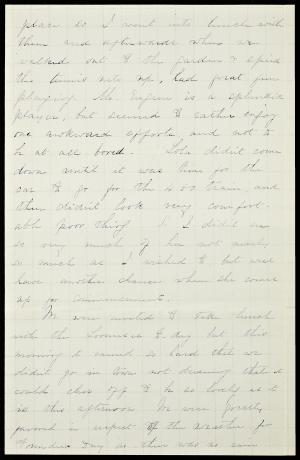 place so I went into lunch with
them and afterwards when we
walked out to the garden & spied
the tennis nets up, had great fun
playing. Mr. Eugene is a splendid
player, but seemed to rather enjoy
our awkward efforts, and not to
be at all bored. Lola didn't come
down until it was time for the
car to go for the 4 00 train, and
then didn't look very comfort-
able poor thing. So I didn't see
so very much of her not nearly
so much as I wished to but will
have another chance when she comes
up for commencement.
We were invited to take lunch
with the Loomises to day but this
morning it rained so hard that we
didn't go in town not dreaming that it
could clear off to be so lovely as it
is this afternoon. We were greatly
favored in respect of the weather for
Founders Day as there was no rain